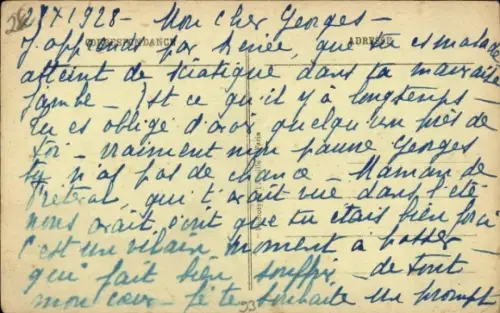 28 X 1928 - Mon cher Georges -
CORRESPONDANCE
ADRESSE
J'apprends par Renée, que tu es malade
atteint de sciatique dans ta mauvaise
jambe - Est ce qu'il y a longtemps -
Tu es obligé d'avoir quelqu'un près de
toi - vraiment mon pauvre Georges
tu n'as pas de chance - Maman de
qui t'avait vue dans l'été
nous avait écrit que tu étais bien
C'est un vilain moment à passer -
qui fait bien souffrir - de tout
mon cœur - je te souhaite un prompt
93